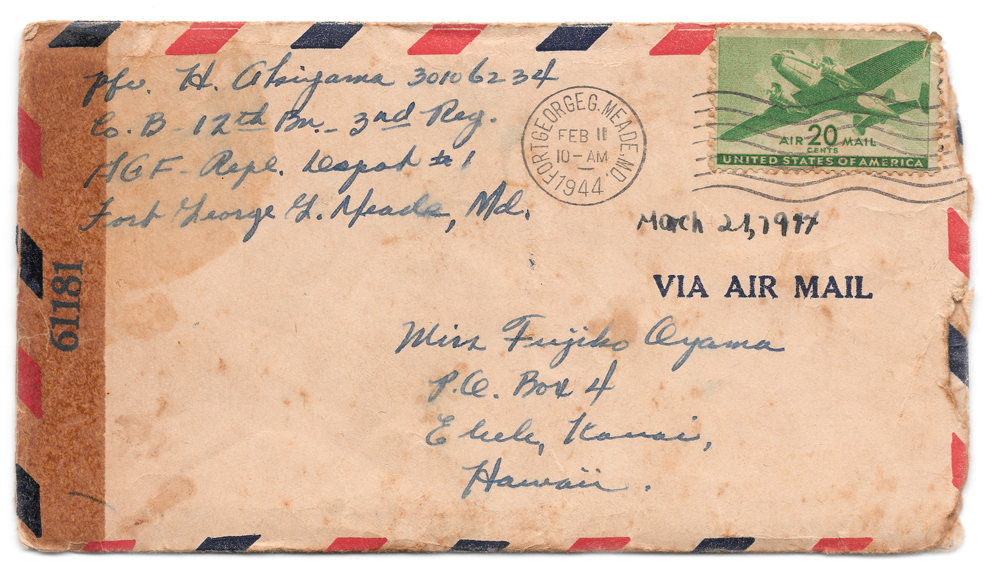 Pfc. H. Akiyama 30106234
Co. B - 12th Bn. - 3rd Reg.
AGF - Repl. Depot #1
Fort George G. Meade, Md.
FORT GEORGE G. MEADE, MD.
FEB 11
10-AM
1944
AIR 20 MAIL
CENTS
UNITED STATES OF AMERICA
March 21, 1944
VIA AIR MAIL
61181
Miss Fujiko Oyama
P.O. Box 4
Eleele, Kauai,
Hawaii.